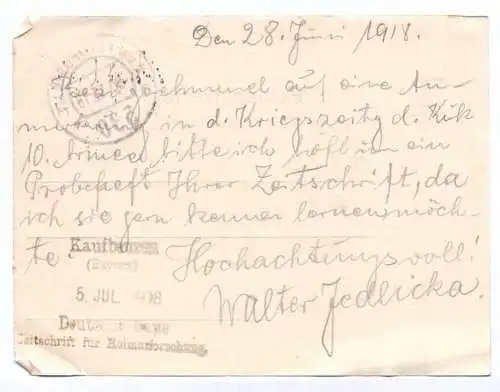 Den 28. Juni 1918.
auf eine An-
in d. Kriegszeitg d. KuK
10. Armee bitte ich höfl. um ein
Probeheft Ihrer Zeitschrift, da
ich sie gern kennen lernen möch-
te.
Hochachtungsvoll!
Walter Jedlicka.
Kaufbeuren
(Bayern)
5. JUL 1918
Deutsche Gaue
Zeitschrift für Heimatforschung.